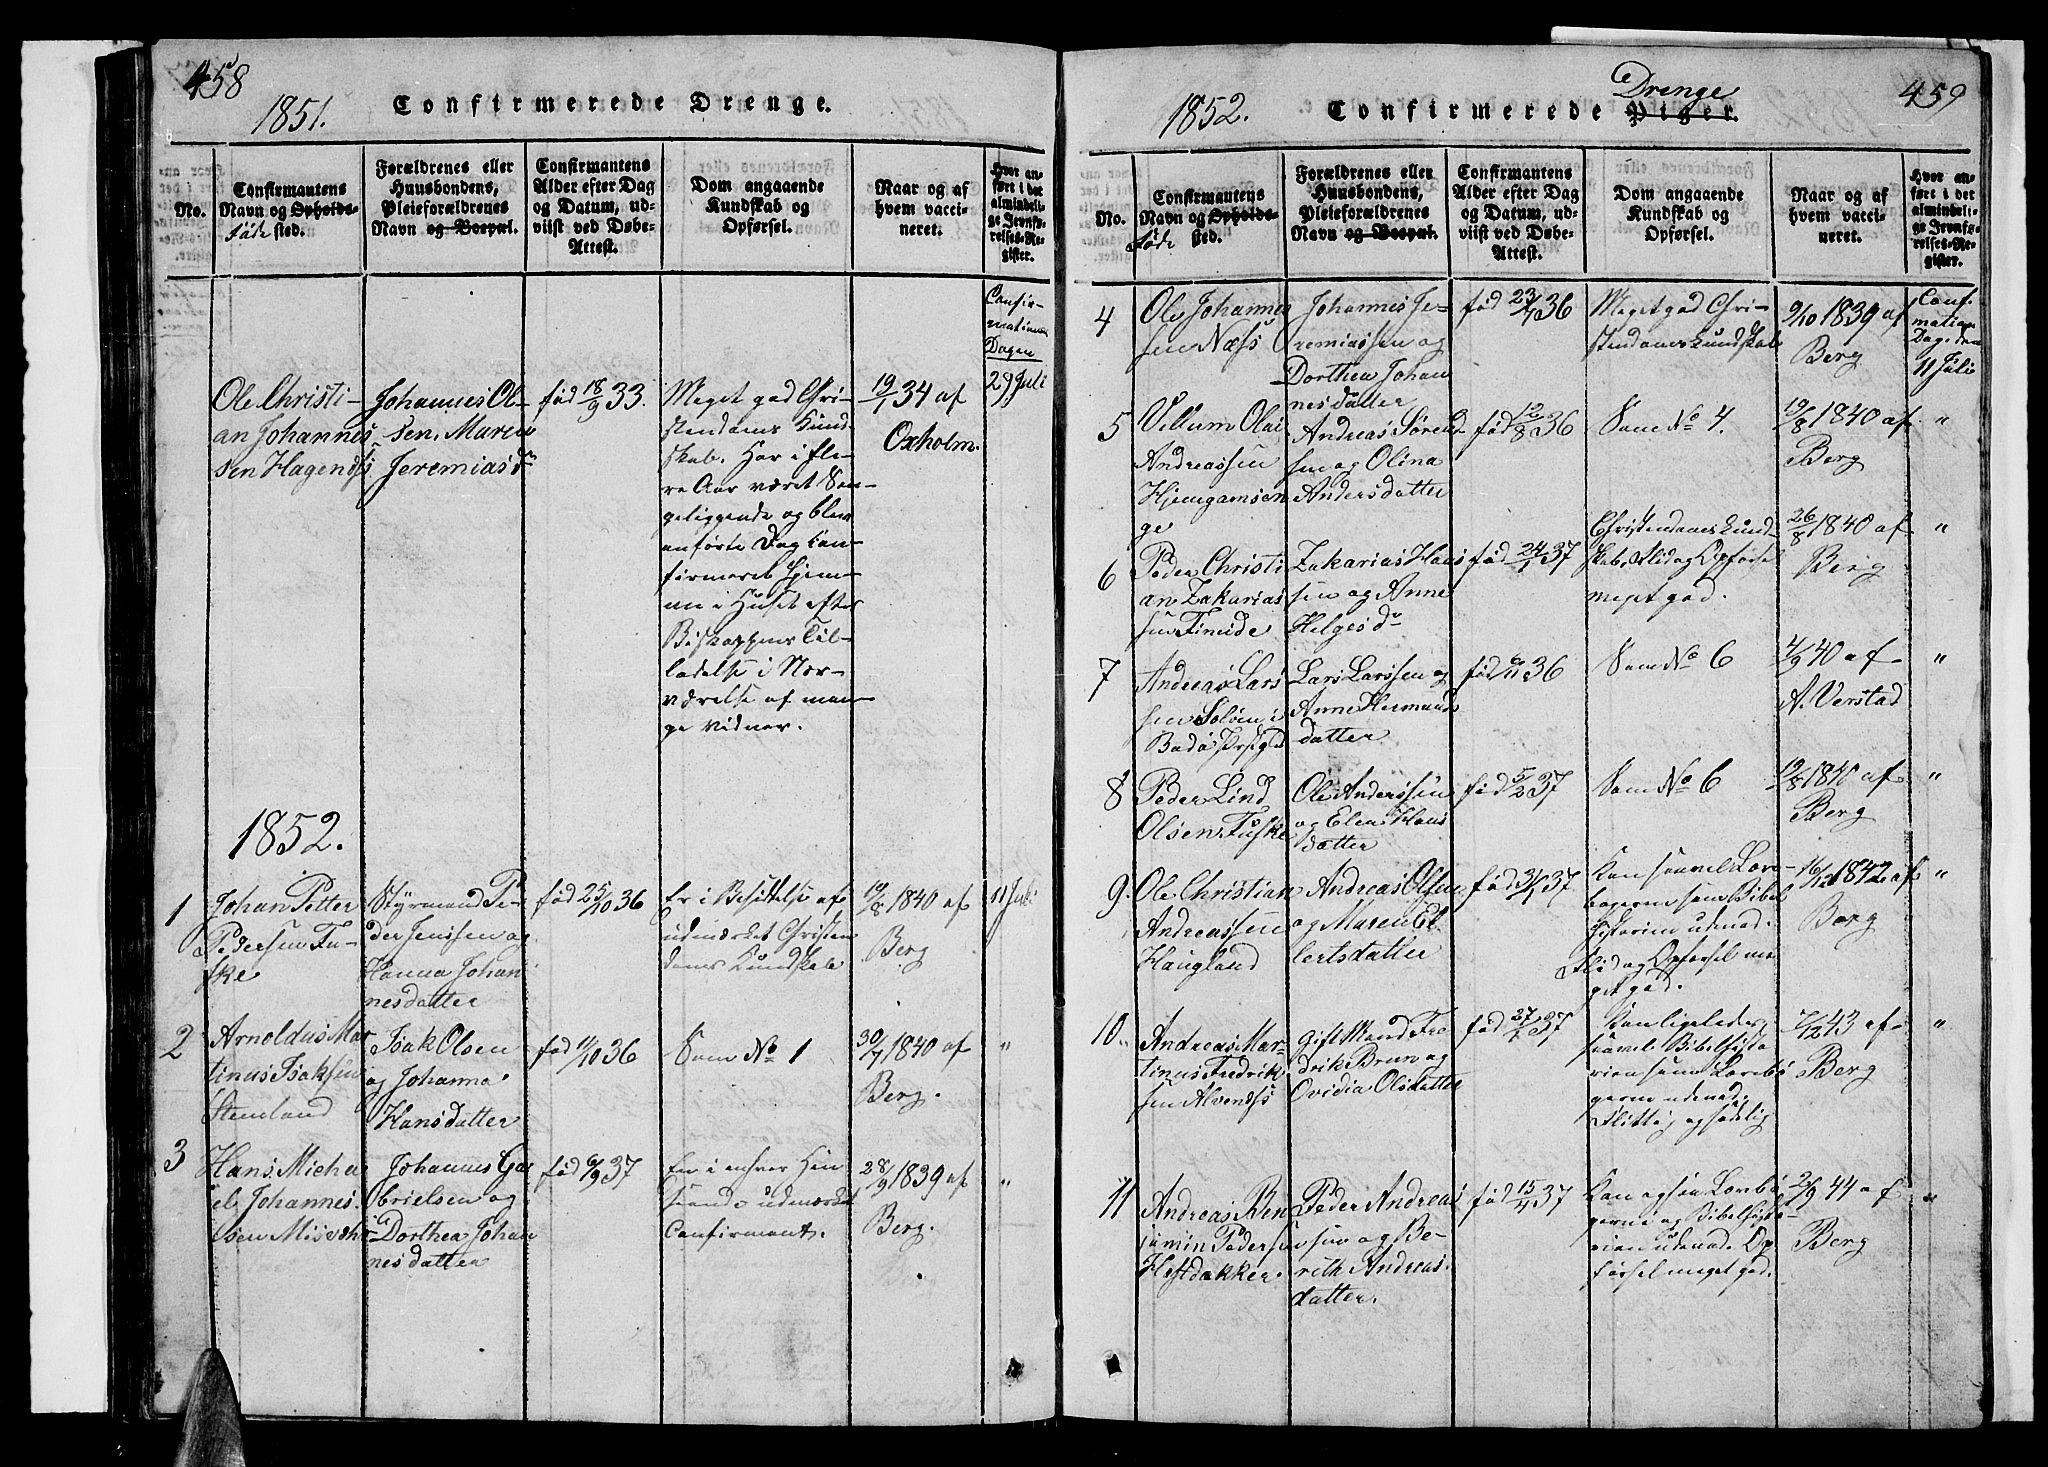 458
1851.
Confirmerede Drenge.
No.
Confirmantens
Navn og Opholds-
Føde sted.
Forældrenes eller
Huusbondens,
Pleieforældrenes
Navn og Boepæl.
Confirmantens
Alder efter Dag
og Datum, ud-
viist ved Døbe-
Attest.
Dom angaaende
Kundskab og
Opførsel.
Naar og af
hvem vacci-
neret.
Hvor an-
ført i det
almindeli-
ge Jevnfø-
relses-Re-
gister.
Confir-
mations
Dagen
Ole Christi-
an Johannes
sen Hagenæs
Johannes Ol-
sen. Maren
Jeremiasdr
fød 18/9 33.
Meget god Chri-
stendoms Kund-
skab. Har i fle-
re Aar været Sen-
geliggende og blev
anførte Dag con-
firmeret hjem-
me i Huset efter
Biskoppens Til-
ladelse i Nær-
værelse af man-
ge vidner.
19/1 34 af
Oxholm.
29 Juli
1852.
1
Johan Petter
Pedersen Fu-
ske
Styrmand Pe-
der Jenssen og
Hanna Johan
nesdatter
fød 25/10 36
Er i Besiddelse af
udmærket Christen
doms Kundskab
19/8 1840 af
Berg
11 Juli
2
Arnoldus Mar
tinus Isaksen
Stemland
Isak Olsen
og Johanna
Hansdatter
fød 11/10 36
Som No 1
30/7 1840 af
Berg.
"
3
Hans Micha
el Johannes
sen Misvær
Johannes Ga
brielsen og
Dorthea Johan
nesdatter
fød 6/9 37
En i enhver Hen
seende udmærket
Confirmant.
28/9 1839 af
Berg.
"
459
1852.
Confirmerede Piger.
Drenge
No.
Confirmantens
Navn og Opholds-
Føde
sted.
Forældrenes eller
Huusbondens,
Pleieforældrenes
Navn og Boepæl.
Confirmantens
Alder efter Dag
og Datum, ud-
viist ved Døbe-
Attest.
Dom angaaende
Kundskab og
Opførsel.
Naar og af
hvem vacci-
neret.
Hvor an-
ført i det
almindeli-
ge Jevnfø-
relses-Re-
gister.
4
Ole Johannes
sen Næss
Johannes Je-
remiassen og
Dorthea Johan
nesdatter
fød 23/10 36
Meget god Chri-
stendomskundskab
9/10 1839 af
Berg
Conf.
mations
Dag den
11 Juli
5
Villum Olai
Andreassen
Hjemgamsen
ge
Andreas Søren
sen og Olina
Andersdatter
fød 12/8 36
Som No 4.
19/8 1840 af
Berg
"
6
Peder Christi
an Zakarias
sen
Zakarias Hans
sen og Anne
Helgesdr
fød 24/1 37
Christendomskund-
skab, Flid og Opførsel
meget god.
26/8 1840 af
Berg
"
7
Andreas Lars
sen Soløen i
Bodø Prstgd
Lars Larssen og
Anne Hermans
datter
fød 6/11 36
Som No 6
4/9 40 af
A. Verstad
"
8
Peder Lind
Olsen Fuske
Ole Anderssen
og Elen Hans
datter
fød 5/2 37
Som No 6
19/8 1840 af
Berg
"
9.
Ole Christian
Andreassen
Haugland
Andreas Olsen
og Maren El
lertsdatter
fød 31/1 37
Kan saavel Lære-
bøgerne som Bibel
historien udenad.
Flid og Opførsel me
get god.
16/12 1842 af
Berg
"
10..
Andreas Mar-
tinus Fredrik
sen Alvenæss
Gift Mand Fre
drik Brun og
Ovidia Olsdatter
Kan ligeledes
saavel Bibelhisto
rien som Lærebø
gerne udenad.
Flittig og sædelig
7/12 43 af
Berg
"
11
Andreas Ben
jamin Peder
Peder Andreas
sen og Be-
reth Andreas
datter.
fød 15/4 37
Kan ogsaa Lærebø
gerne og Bibelhisto-
rien udenad. Op
førsel meget god.
2/9 44 af
Berg
"